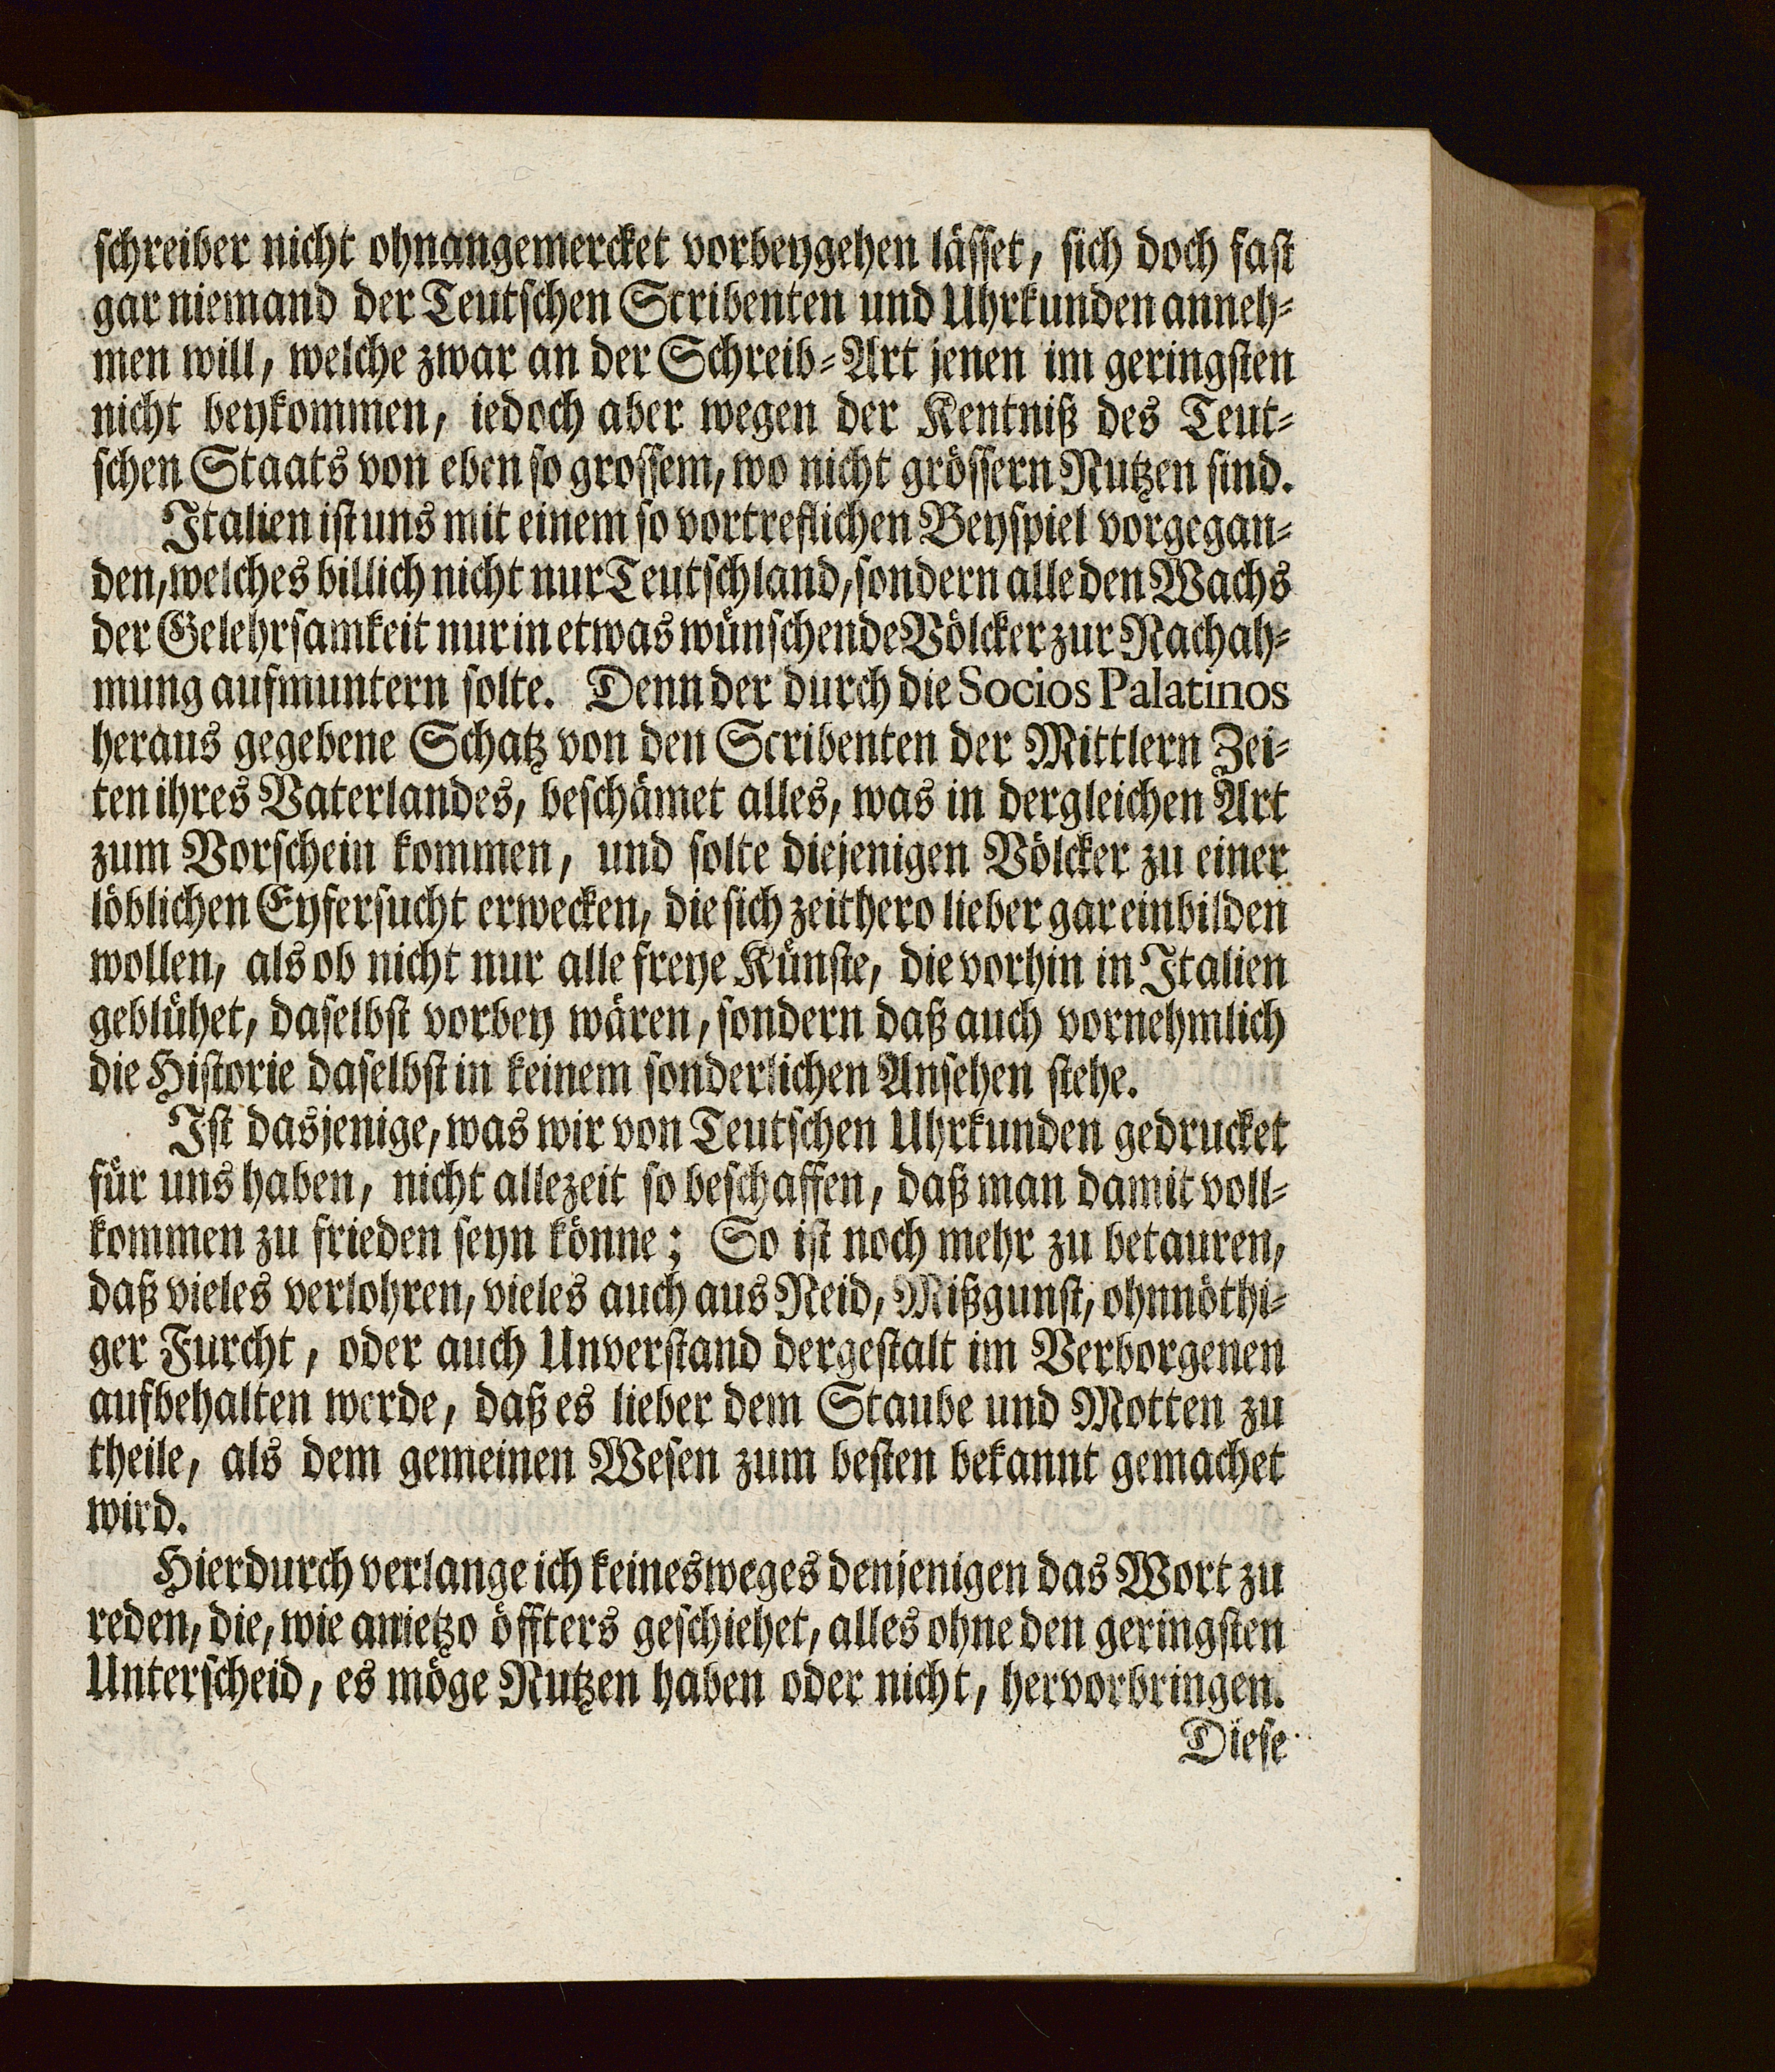 schreiber nicht ohnangemercket vorbeygehen lässet, sich doch fast
gar niemand der Teutschen Scribenten und Uhrkunden anneh-
men will, welche zwar an der Schreib-Art jenen im geringsten
nicht beykommen, iedoch aber wegen der Kentniß des Teut-
schen Staats von eben so grossem, wo nicht grössern Nutzen sind.
Italien ist uns mit einem so vortreflichen Beyspiel vorgegan-
den, welches billich nicht nur Teutschland, sondern alle den Wachs
der Gelehrsamkeit nur in etwas wünschende Völcker zur Nachah-
mung aufmuntern solte. Denn der durch die Socios Palatinos
heraus gegebene Schatz von den Scribenten der Mittlern Zei-
ten ihres Vaterlandes, beschämet alles, was in dergleichen Art
zum Vorschein kommen, und solte diejenigen Völcker zu einer
löblichen Eyfersucht erwecken, die sich zeithero lieber gar einbilden
wollen, als ob nicht nur alle freye Künste, die vorhin in Italien
geblühet, daselbst vorbey wären, sondern daß auch vornehmlich
die Historie daselbst in keinem sonderlichen Ansehen stehe.
Ist dasjenige, was wir von Teutschen Uhrkunden gedrucket
für uns haben, nicht allezeit so beschaffen, daß man damit voll-
kommen zu frieden seyn könne; So ist noch mehr zu betauren,
daß vieles verlohren, vieles auch aus Neid, Mißgunst, ohnnöthi-
ger Furcht, oder auch Unverstand dergestalt im Verborgenen
aufbehalten werde, daß es lieber dem Staube und Motten zu
theile, als dem gemeinen Wesen zum besten bekannt gemachet
wird.
Hierdurch verlange ich keinesweges denjenigen das Wort zu
reden, die, wie anietzo öffters geschiehet, alles ohne den geringsten
Unterscheid, es möge Nutzen haben oder nicht, hervorbringen.
Diese